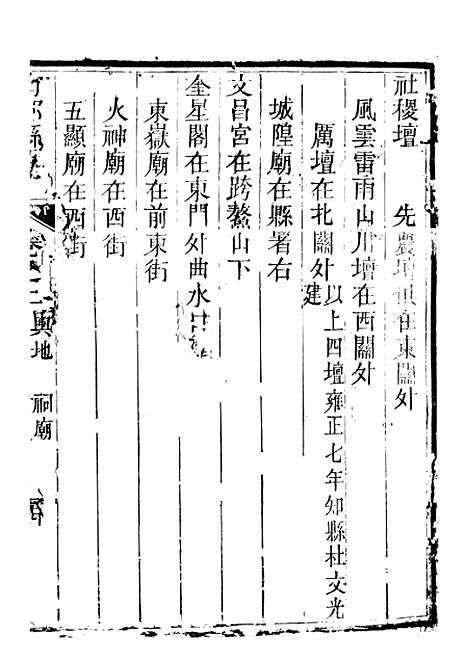 社稷壇　先農壇俱在東關外
風雲雷雨山川壇在西關外
厲壇在北關外以上四壇雍正七年知縣杜文光建
城隍廟在縣署右
文昌宮在跨鰲山下
奎星閣在東門外曲水
東嶽廟在前東街
火神廟在西街
五顯廟在西街
縣志 卷之二 輿地 祠廟